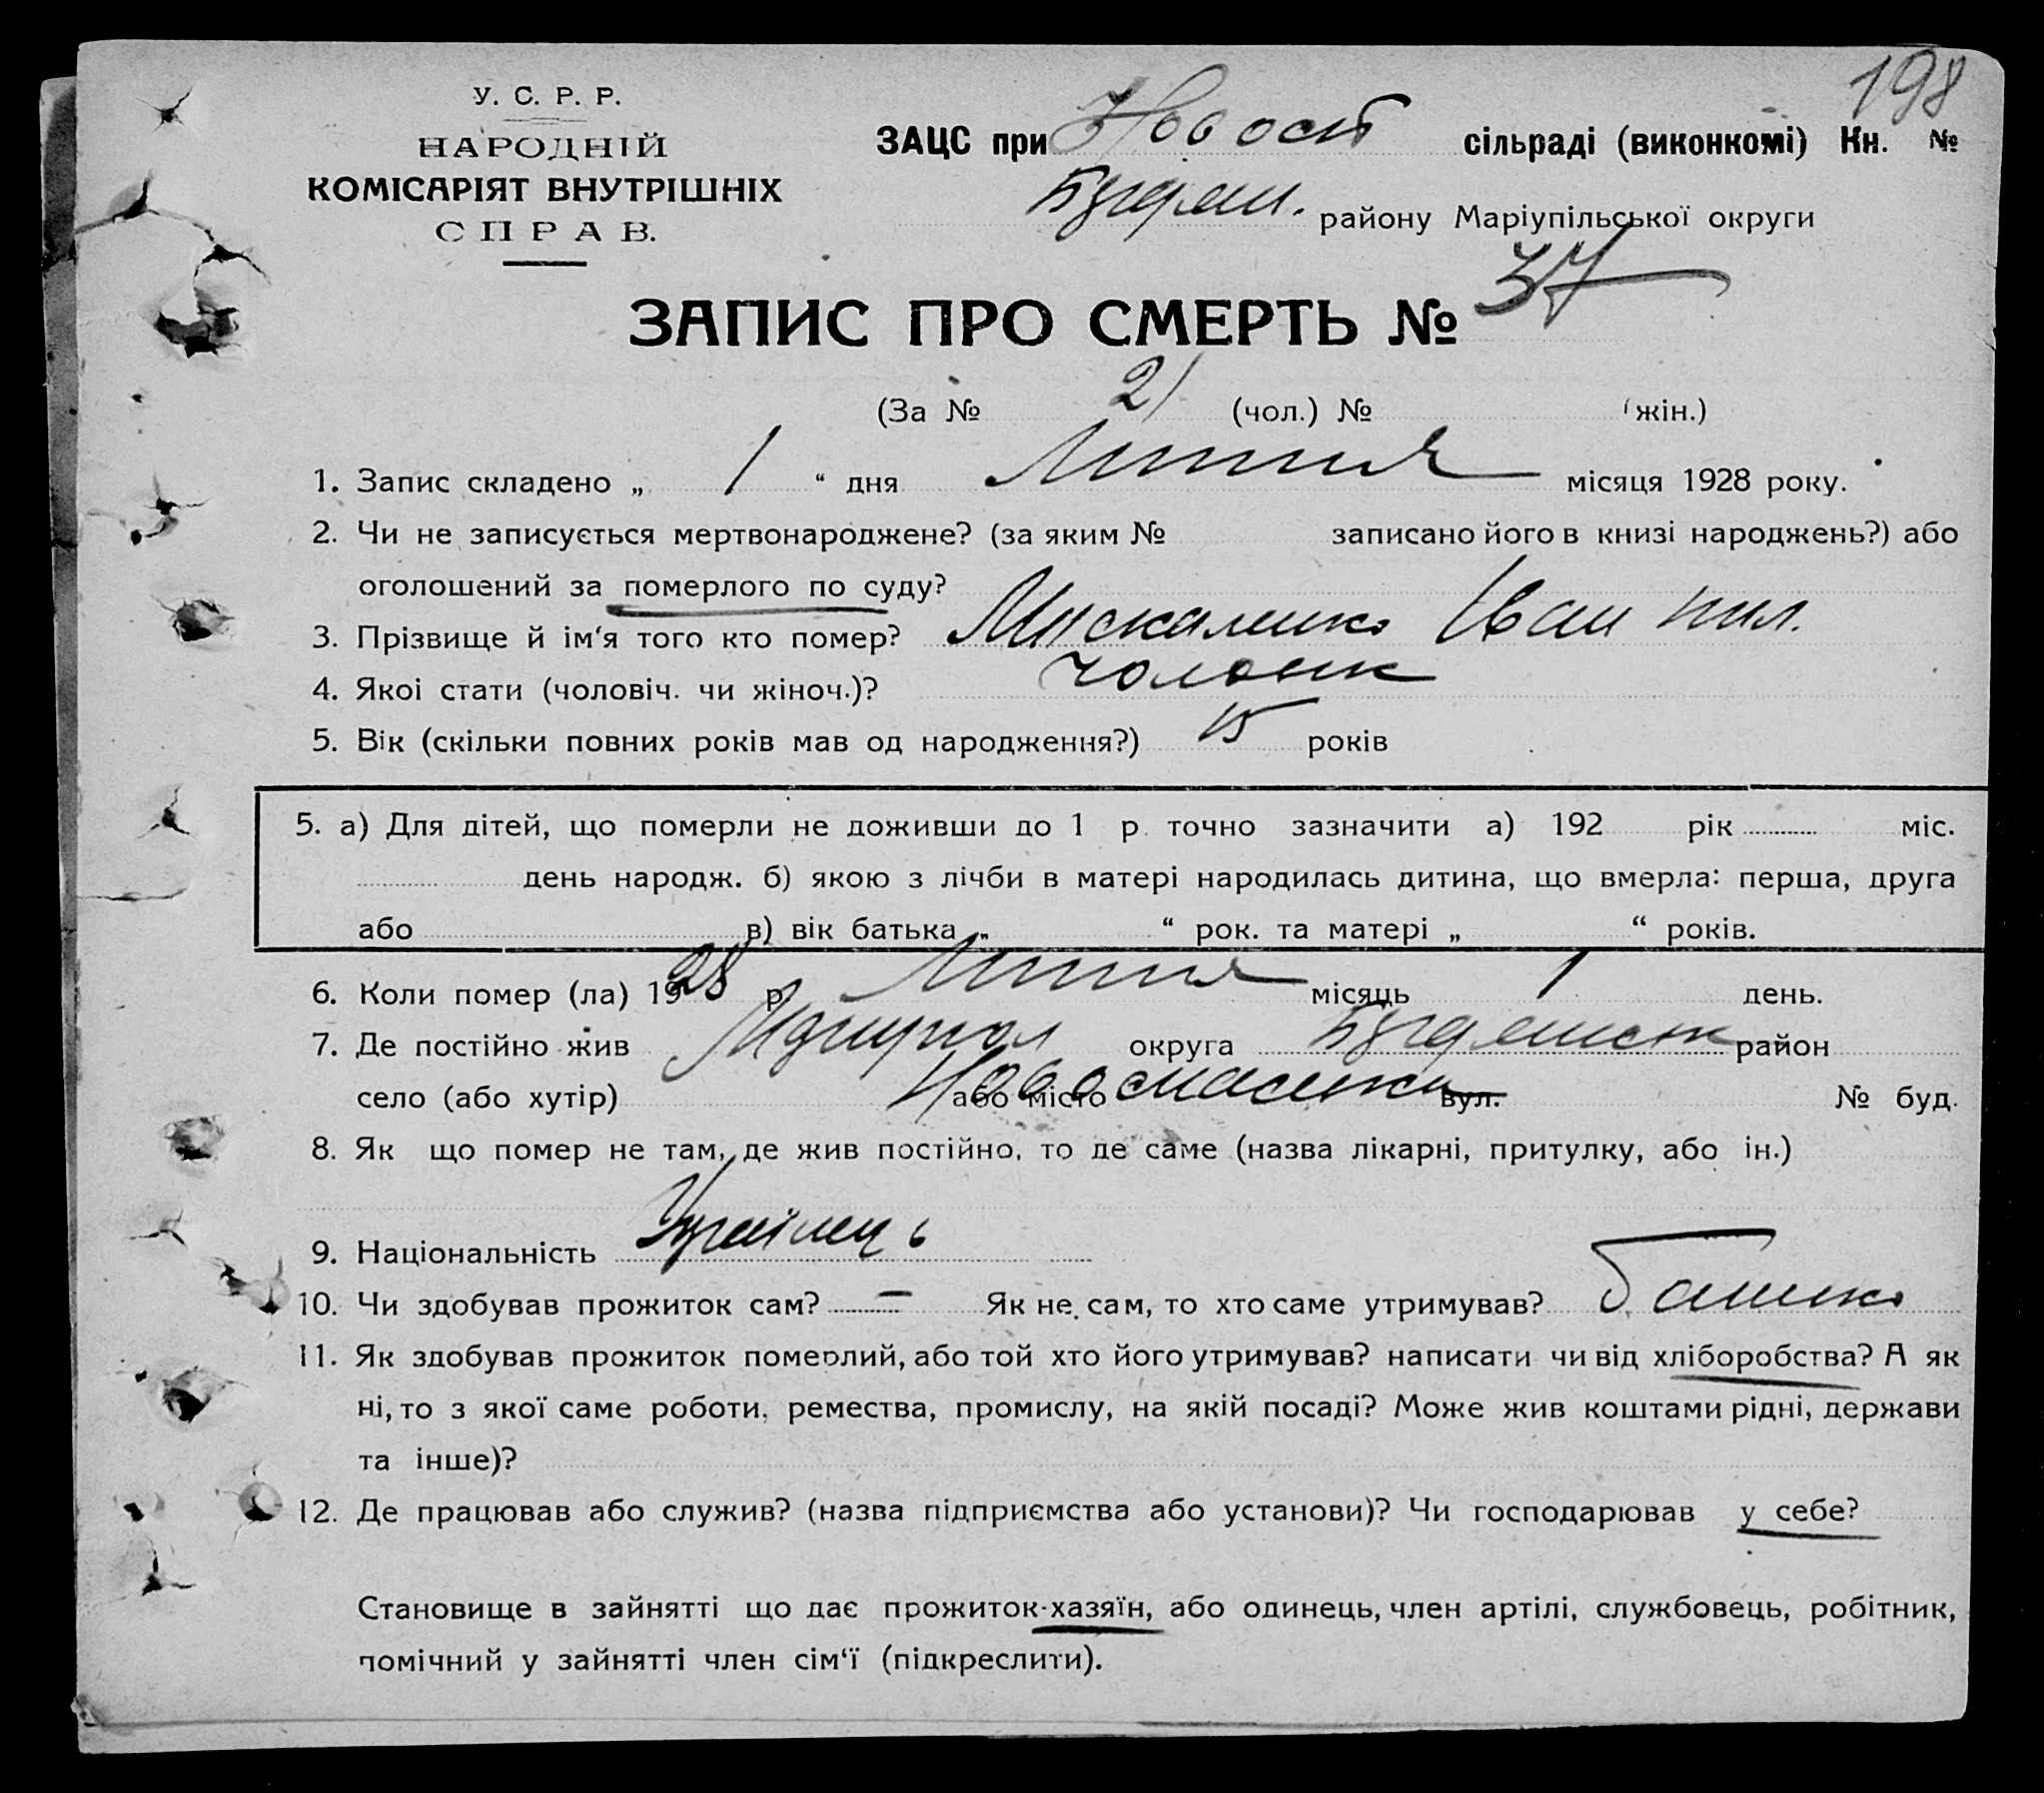 198
У. С. Р. Р.
НАРОДНІЙ
КОМІСАРІЯТ ВНУТРІШНІХ
СПРАВ.
ЗАЦС при сільраді (виконкомі) Кн. №
району Маріупільської округи
ЗАПИС ПРО СМЕРТЬ № 37
(За № 21 (чол.) № (жін.)
1. Запис складено „ 1 “ дня Липня місяця 1928 року.
2. Чи не записується мертвонароджене? (за яким № записано його в книзі народжень?) або
оголошений за померлого по суду?
3. Прізвище й ім‘я того кто помер? Іван
4. Якоі стати (чоловіч. чи жіноч.)? чоловік
5. Вік (скільки повних років мав од народження?) 15 років
5. а) Для дітей, що померли не доживши до 1 р. точно зазначити а) 192 рік міс.
день народж. б) якою з лічби в матері народилась дитина, що вмерла: перша, друга
або в) вік батька „ “ рок. та матері „ “ років.
6. Коли помер (ла) 1928 р Липня місяць 1 день.
7. Де постійно жив округа район
село (або хутір) або місто вул. № буд.
8. Як що помер не там, де жив постійно, то де саме (назва лікарні, притулку, або ін.)
9. Національність Українець
10. Чи здобував прожиток сам? — Як не сам, то хто саме утримував? батько
11. Як здобував прожиток померлий, або той хто його утримував? написати чи від хліборобства? А як
ні, то з якої саме роботи, ремества, промислу, на якій посаді? Може жив коштами рідні, держави
та інше)?
12. Де працював або служив? (назва підприємства або установи)? Чи господарював у себе?
Становище в зайнятті що дає прожиток-хазяїн, або одинець, член артілі, службовець, робітник,
помічний у зайнятті член сім‘ї (підкреслити).